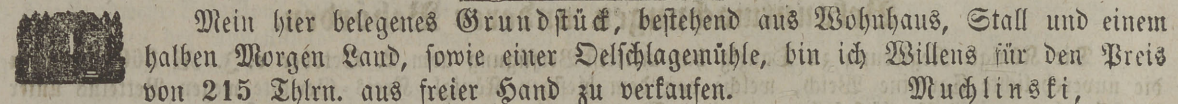 Mein hier belegenes Grundstück, bestehend aus Wohnhaus, Stall und einem
halben Morgen Land, sowie einer Oelschlagemühle, bin ich Willens für den Preis
von 215 Thlrn. aus freier Hand zu verkaufen. Muchlinski,